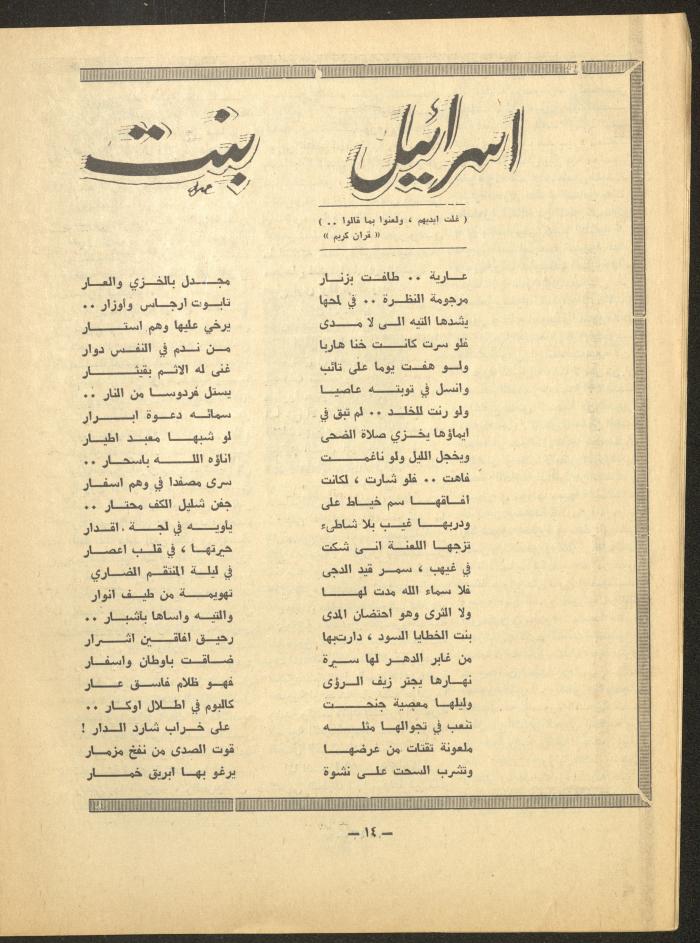 اسرائيل بنت
( غلت ايديهم ، ولعنوا بما قالوا . . )
« قرآن كريم »
عارية . . طافت بزنار مجدل بالخزي والعار
مرجومة النظرة . . في لمحها تابوت ارجاس واوزار . .
يشدها التيه الى لا مدى يرخي عليها وهم استار
فلو سرت كانت خنا هاربا من ندم في النفس دوار
ولو هفت يوما على تائب غنى له الاثم بقيثار
وانسل في توبته عاصيا يستل فردوسا من النار . .
ولو رنت للخلد . . لم تبق في سمائه دعوة ابرار
ايماؤها يخزي صلاة الضحى لو شبها معبد اطيار
ويخجل الليل ولو ناغمت اناؤه الله باسحار . .
فاهت . . فلو شارت ، لكانت سرى مصفدا في وهم اسفار
افاقها سم خياط على جفن شليل الكف محتار . .
ودربها غيب بلا شاطىء ياويه في لجة اقدار
تزجها اللعنة انى شكت حيرتها ، في قلب اعصار
في غيهب ، سمر قيد الدجى في ليلة المنتقم الضاري
فلا سماء الله مدت لها تهويمة من طيف انوار
ولا الثرى وهو احتضان المدى والتيه واساها باشبار . .
بنت الخطايا السود ، دارت بها رحيق افاقين اشرار
من غابر الدهر لها سيرة ضاقت باوطان واسفار
نهارها يجتر زيف الرؤى فهو ظلام فاسق عار
وليلها معصية جنحت كالبوم في اطلال اوكار . .
تنعب في تجوالها مثله على خراب شارد الدار !
ملعونة تقتات من عرضها قوت الصدى من نفخ مزمار
وتشرب السحت على نشوة يرغو بها ابريق خمار
— ١٤ —